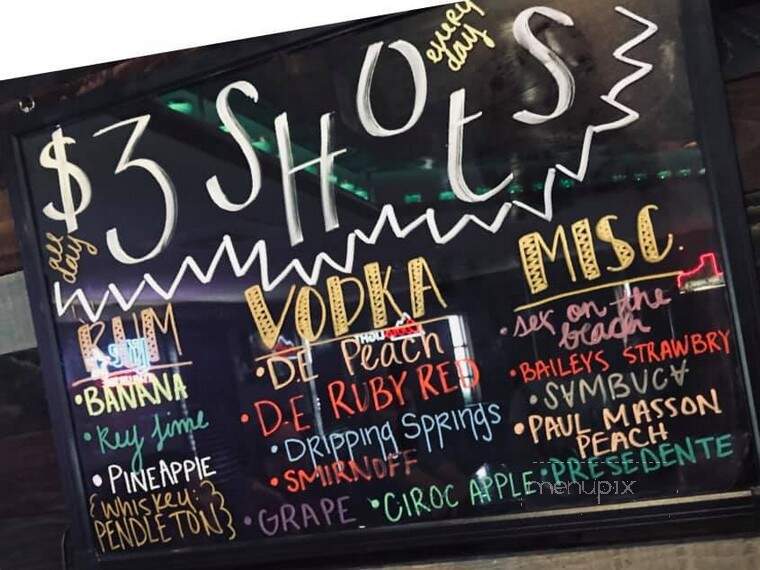 $3 SHOtS
every
day
all
day
RUM
• BANANA
• Key lime
• PINEAPPLE
{WHISKEY:
PENDLETON}
VODKA
• D.E Peach
• D.E. RUBY RED
• DRIPPING SPRINGS
• SMIRNOFF
• GRAPE
• CIROC APPLE
MISC.
• sex on the
beach
• BAILEYS STRAWBRY
• SAMBUCA
• PAUL MASSON
PEACH
• PRESEDENTE
menupix